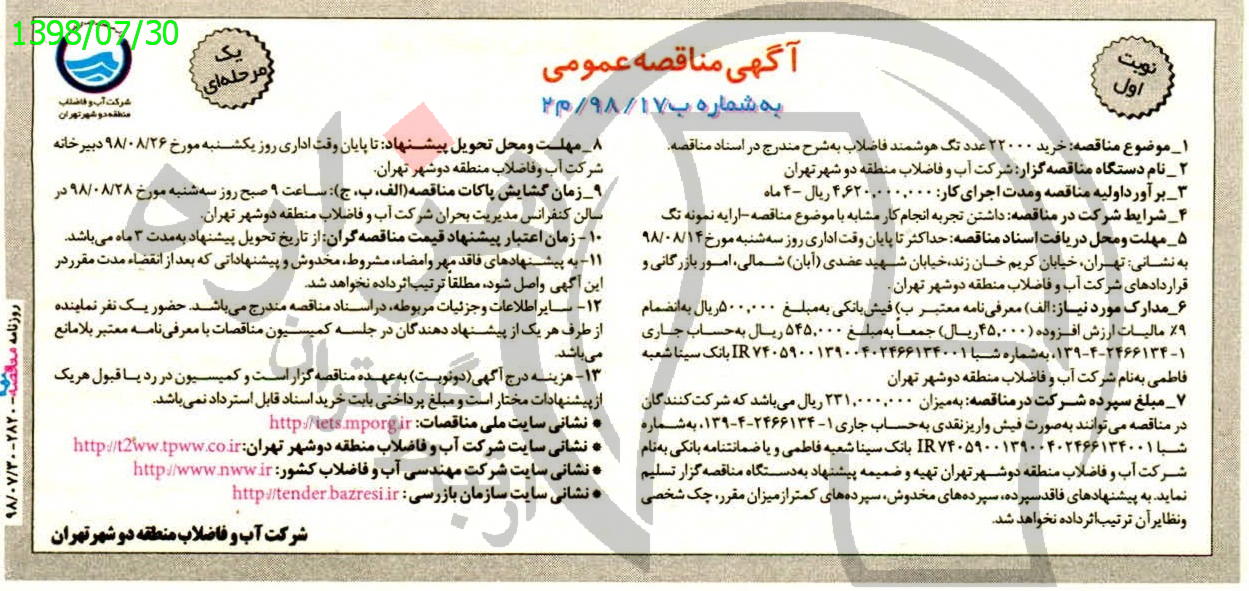 1398/07/30
شرکت آب و فاضلاب
منطقه دو شهر تهران
یک
مرحله‌ای
آگهی مناقصه عمومی
به شماره ب۱۷/ ۹۸/ م۲
نوبت
اول
۱_ موضوع مناقصه: خرید ۲۲۰۰۰ عدد تگ هوشمند فاضلاب به‌شرح مندرج در اسناد مناقصه.
۲_ نام دستگاه مناقصه‌گزار: شرکت آب و فاضلاب منطقه دو شهر تهران
۳_ برآورد اولیه مناقصه ومدت اجرای کار: ۴,۶۲۰,۰۰۰,۰۰۰ ریال -۴ ماه
۴_ شرایط شرکت در مناقصه: داشتن تجربه انجام کار مشابه با موضوع مناقصه -ارایه نمونه تگ
۵_ مهلت ومحل دریافت اسناد مناقصه: حداکثر تا پایان وقت اداری روز سه‌شنبه مورخ ۹۸/۰۸/۱۴
به نشانی: تهران، خیابان کریم خان زند، خیابان شهید عضدی (آبان) شمالی، امور بازرگانی و
قراردادهای شرکت آب و فاضلاب منطقه دوشهر تهران .
۶_ مدارک مورد نیاز: الف) معرفی‌نامه معتبر ب) فیش‌بانکی به‌مبلغ ۵۰۰,۰۰۰ریال به‌انضمام
۹٪ مالیات ارزش افزوده (۴۵,۰۰۰ریال) جمعاً به‌مبلغ ۵۴۵,۰۰۰ ریال به‌حساب جاری
۱-۲۴۶۶۱۳۴-۴-۱۳۹، به‌شماره شبا IR۷۴۰۵۹۰۰۱۳۹۰۰۴۰۲۴۶۶۱۳۴۰۰۱ بانک سینا شعبه
فاطمی به‌نام شرکت آب و فاضلاب منطقه دوشهر تهران
۷_ مبلغ سپرده شرکت در مناقصه: به‌میزان ۲۳۱,۰۰۰,۰۰۰ ریال می‌باشد که شرکت‌کنندگان
در مناقصه می‌توانند به‌صورت فیش واریز نقدی به‌حساب جاری ۱-۲۴۶۶۱۳۴-۴-۱۳۹، به‌شماره
شبا IR۷۴۰۵۹۰۰۱۳۹۰۰۴۰۲۴۶۶۱۳۴۰۰۱ بانک سینا شعبه فاطمی و یا ضمانتنامه بانکی به‌نام
شرکت آب و فاضلاب منطقه دوشهر تهران تهیه و ضمیمه پیشنهاد به‌دستگاه مناقصه‌گزار تسلیم
نماید. به پیشنهادهای فاقدسپرده، سپرده‌های مخدوش، سپرده‌های کمتراز میزان مقرر، چک شخصی
ونظایر آن ترتیب‌اثر داده نخواهد شد.
۸_ مهلت ومحل تحویل پیشنهاد: تا پایان وقت اداری روز یکشنبه مورخ ۹۸/۰۸/۲۶ دبیرخانه
شرکت آب وفاضلاب منطقه دوشهر تهران.
۹_ زمان گشایش پاکات مناقصه(الف، ب، ج): ساعت ۹ صبح روز سه‌شنبه مورخ ۹۸/۰۸/۲۸ در
سالن کنفرانس مدیریت بحران شرکت آب و فاضلاب منطقه دوشهر تهران.
۱۰- زمان اعتبار پیشنهاد قیمت مناقصه‌گران: از تاریخ تحویل پیشنهاد به‌مدت ۳ ماه می‌باشد.
۱۱- به پیشنهادهای فاقد مهر وامضاء، مشروط، مخدوش و پیشنهاداتی که بعد از انقضاء مدت مقرر در
این آگهی واصل شود، مطلقاً ترتیب‌اثر داده نخواهد شد.
۱۲- سایر اطلاعات وجزئیات مربوطه، در اسناد مناقصه مندرج می‌باشد. حضور یک نفر نماینده
از طرف هر یک از پیشنهاد دهندگان در جلسه کمیسیون مناقصات با معرفی‌نامه معتبر بلامانع
می‌باشد.
۱۳- هزینه درج آگهی(دونوبت) به‌عهده مناقصه‌گزار است و کمیسیون در رد یا قبول هریک
از پیشنهادات مختار است و مبلغ پرداختی بابت خرید اسناد قابل استرداد نمی‌باشد.
* نشانی سایت ملی مناقصات: http://iets.mporg.ir
* نشانی سایت شرکت آب و فاضلاب منطقه دوشهر تهران: http://t2ww.tpww.co.ir
* نشانی سایت شرکت مهندسی آب و فاضلاب کشور: http://www.nww.ir
* نشانی سایت سازمان بازرسی: http://tender.bazresi.ir
شرکت آب و فاضلاب منطقه دو شهر تهران
روزنامه مناقصه‌ها -۲۸۲۰-۹۸/۰۷/۳۰